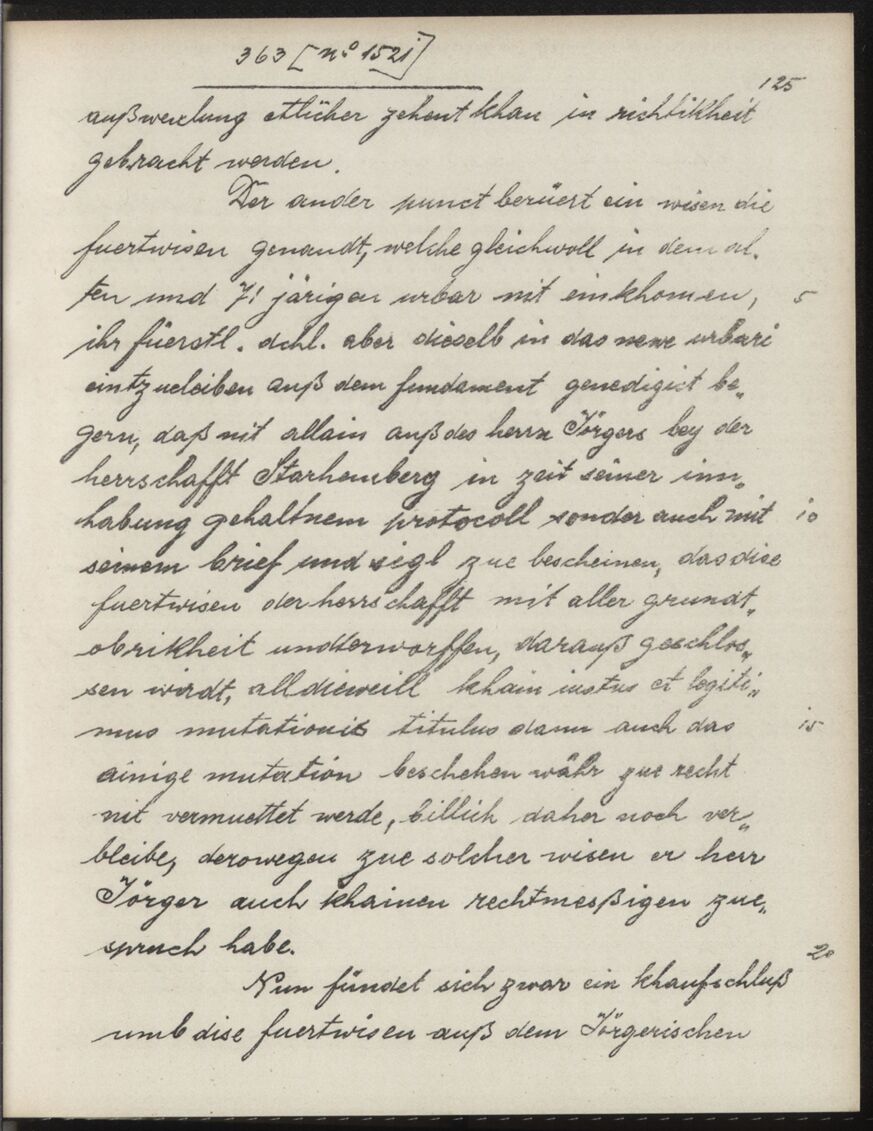 363 [nº 1521]
125
außwexlung etlicher zehent khan in richtikheit
gebracht werden.
Der ander punct berüert ein wisen die
fuertwisen genandt, welche gleichwoll in dem al„
ten und 71 järigen urbar nit einkhomen, 5
ihr füerstl. dchl. aber dieselb in das newe urbari
eintzueleiben auß dem fundament genedigist be„
gern, daß nit allain auß des herrn Jörgers bey der
herrschafft Starhemberg in zeit seiner inn„
habung gehaltnem protocoll sonder auch mit 10
seinem brief und sigl zue bescheinen, das dise
fuertwisen der herrschafft mit aller grundt„
obrikheit undterworffen, darauß geschlos„
sen wirdt, alldieweill khain iustus et legiti„
mus mutationis titulus dann auch das 15
ainige mutation beschehen währ zue recht
nit vermuettet werde, billich daher noch ver„
bleibe, derowegen zue solcher wisen er herr
Jörger auch khainen rechtmeßigen zue„
spruch habe. 20
Nun fündet sich zwar ein khaufschluß
umb dise fuertwisen auß dem Jörgerischen